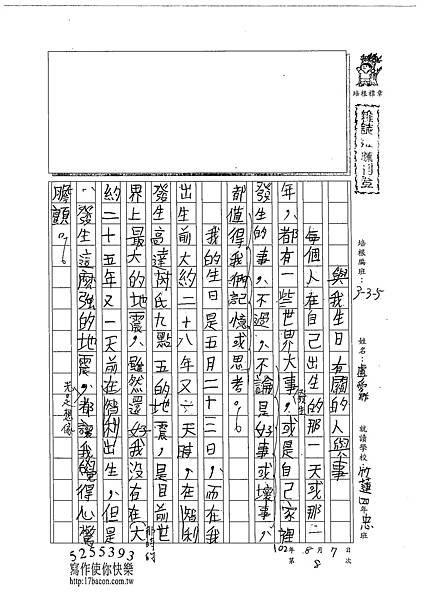 培根標章
培根廣班：3-3-5
姓名：
就讀學校
新蓮四年忠班
與我生日有關的人與事
每個人在自己出生的那一天或那一
年，都有一些世界大事發生，或是自己家裡
發生的事，不過，不論是好事或壞事，
都值得我們記憶或思考。
我的生日是五月二十三日，而在我
出生前大約二十八年又六天時，在智利
發生高達芮氏九點五的地震，是目前世
界上最大的地震，雖然還好我沒有在大
約二十五年又一天前在智利出生，但是
，發生這麼強的地震，都讓我覺得心驚
膽顫。
102年8月7日
第8次
5255393
寫作使你快樂
http://17bacon.com.tw